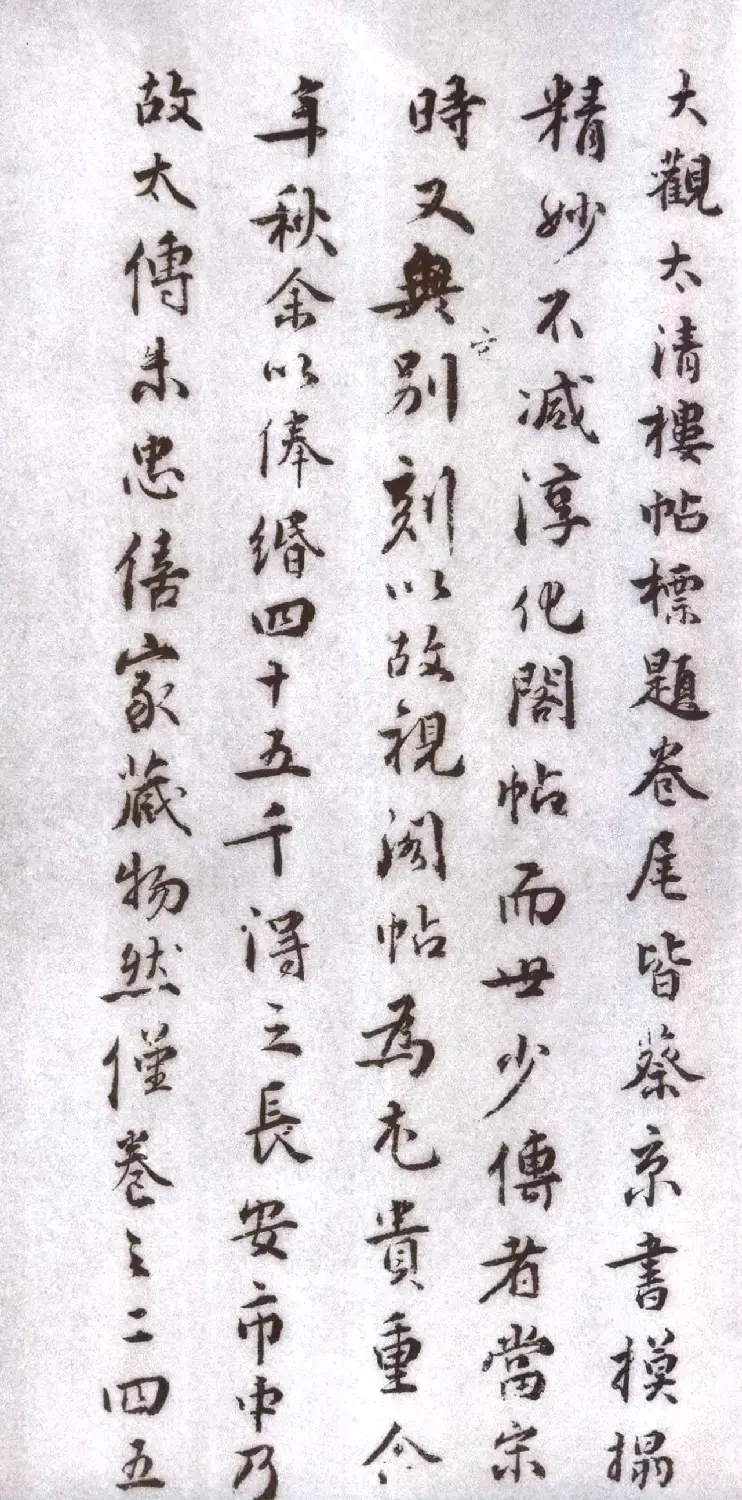 大觀太清樓帖標題卷尾皆蔡京書摸搨
精妙不減淳化閣帖而世少傳者當宋
時又無別刻以故視閣帖為尤貴重今
年秋余以俸緡四十五千得之長安市中乃
故太傅朱忠僖家藏物然僅卷之二四五